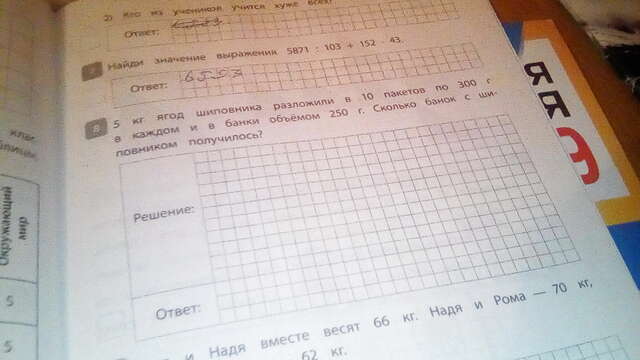 2) Кто из учеников учится хуже всех?
Ответ:
7 Найди значение выражения 5871 : 103 + 152 · 43.
Ответ: 6593
8 5 кг ягод шиповника разложили в 10 пакетов по 300 г
в каждом и в банки объёмом 250 г. Сколько банок с ши-
повником получилось?
Решение:
Ответ:
и Надя вместе весят 66 кг. Надя и Рома — 70 кг,
62 кг.
Окружающий
мир
5
5
я
я